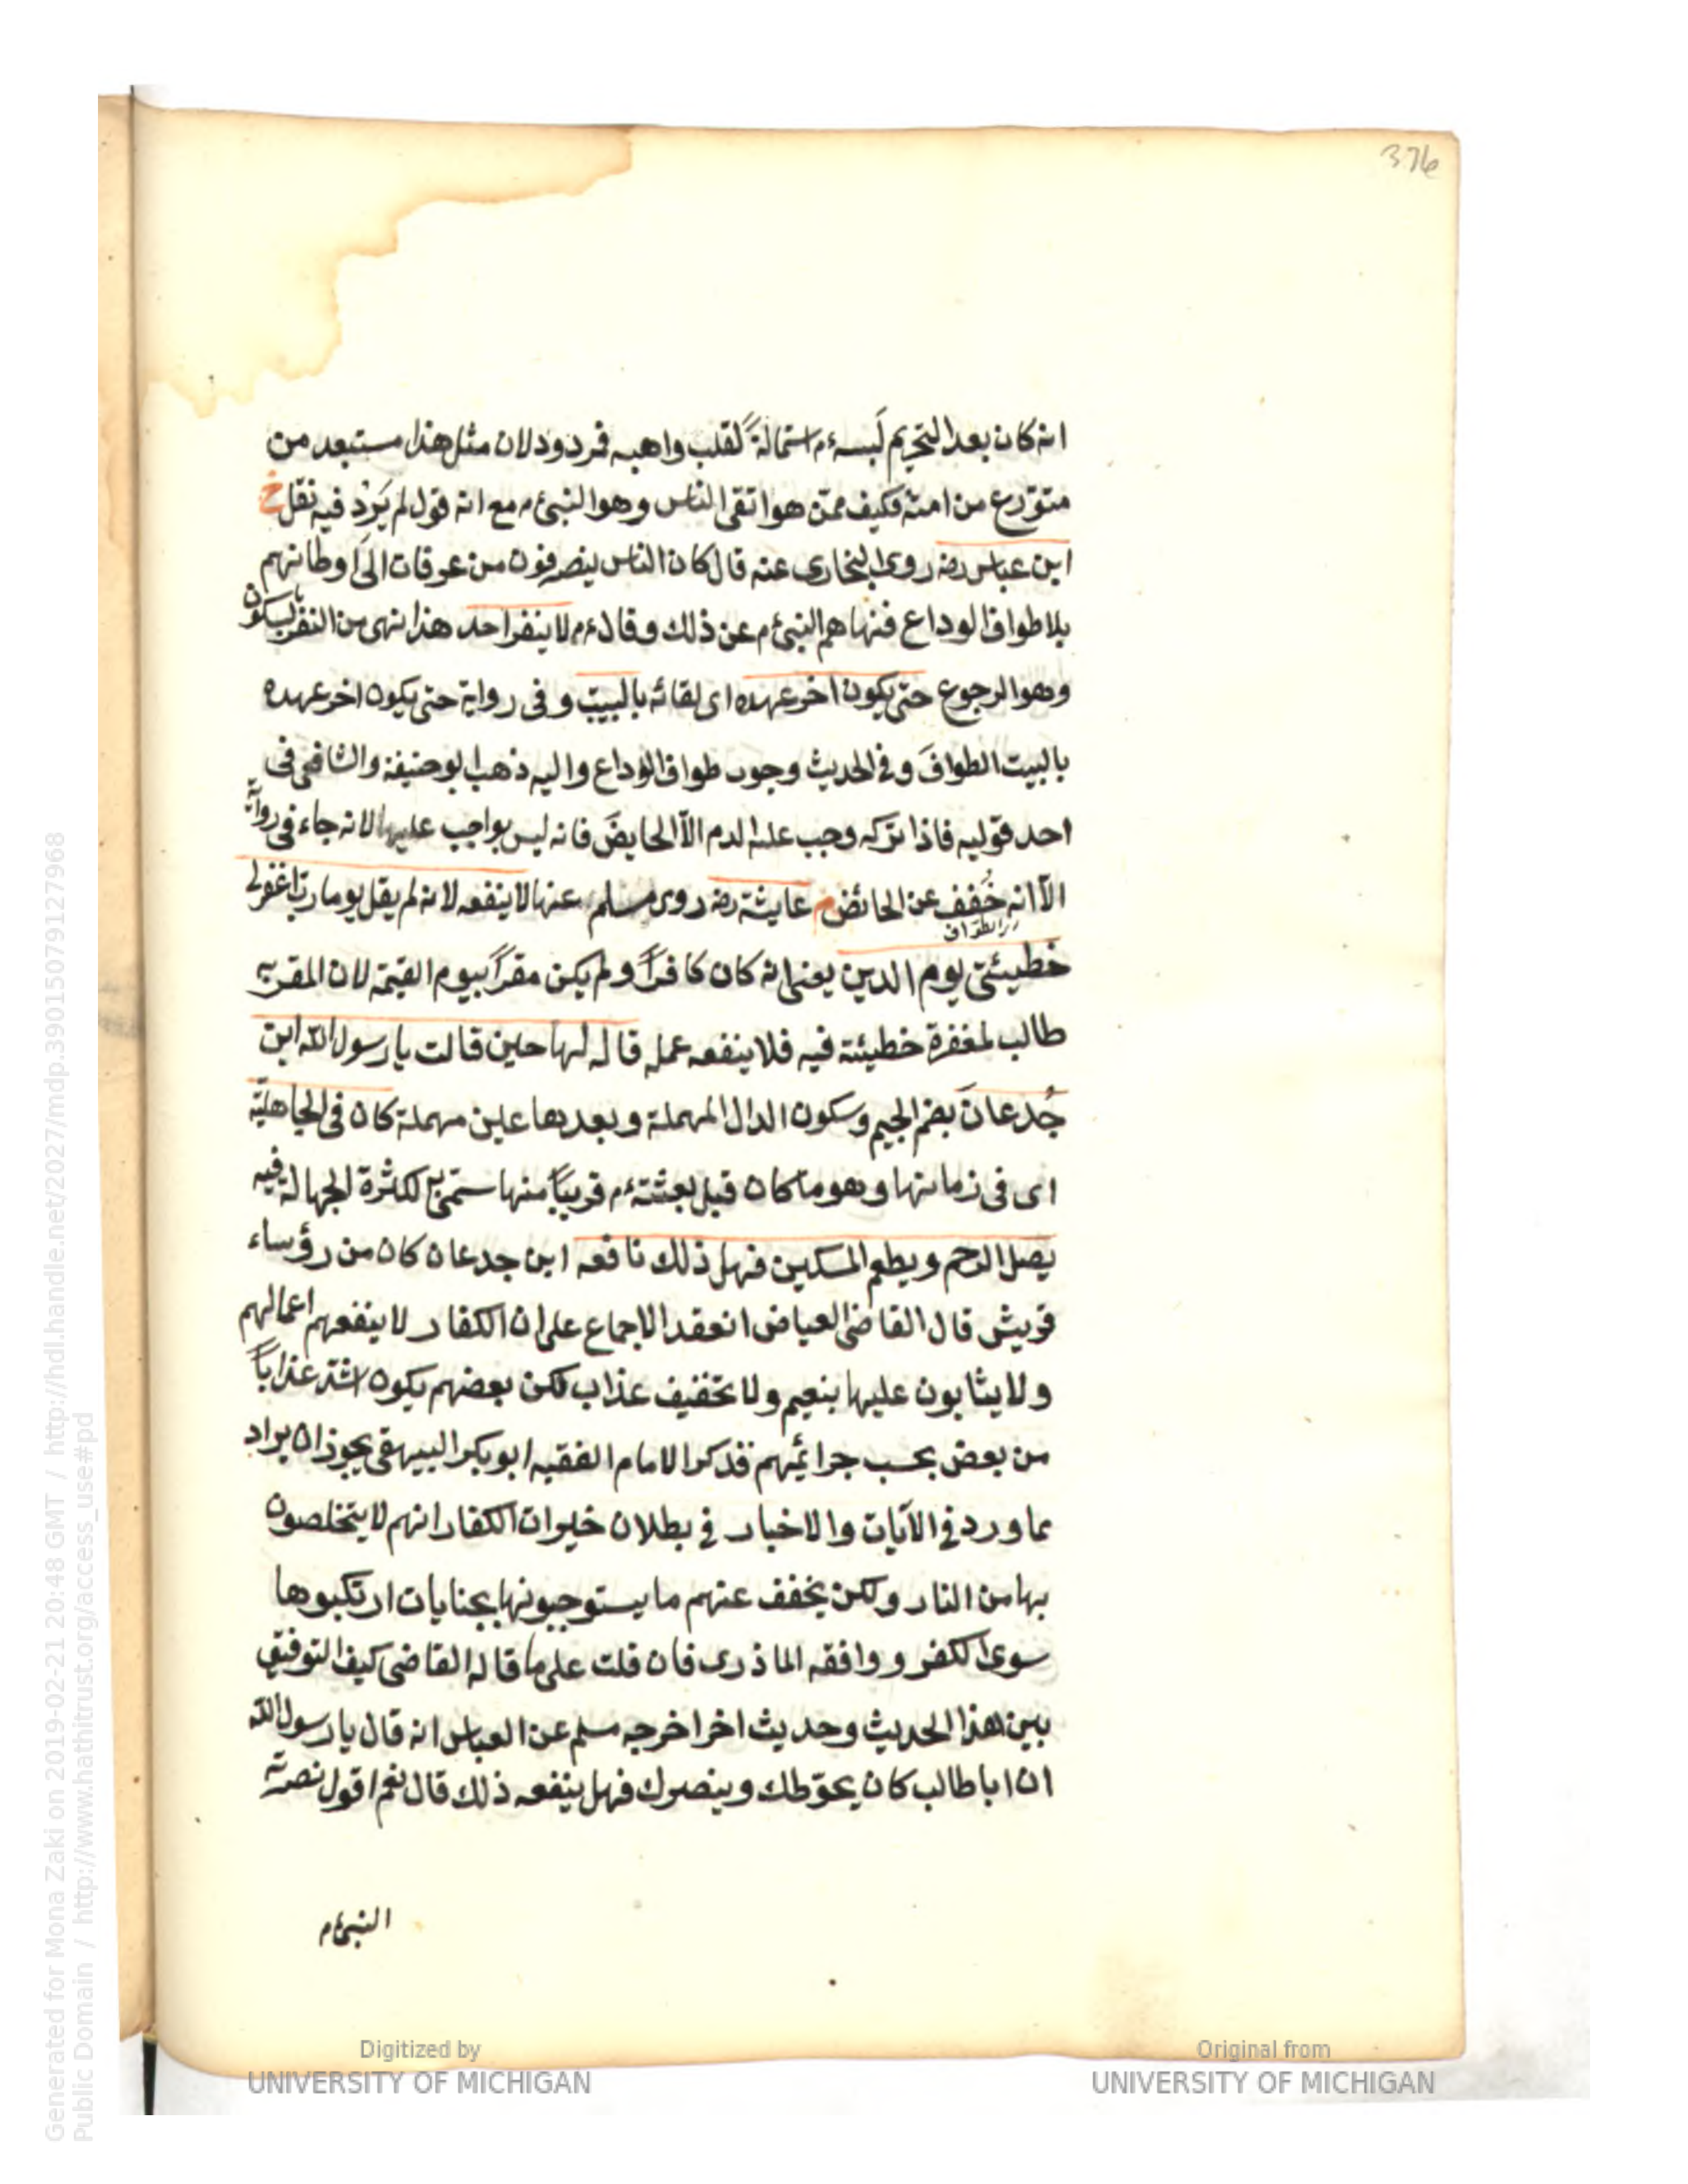 376
انه كان بعد التحريم لَبسه ءم استمالةً لقلب واهبه فمردود لان مثل هذا مستبعد من
متورّع من امته فكيف ممّن هو اتقى الناس وهو النبىءم مع انه قول لم يَرِدْ فيه نقل خ
ابن عباس رضه روى البخارى عنه قال كان الناس ينصرفون من عرفات الى اوطانهم
بلا طواف الوداع فنهاهم النبىءم عن ذلك وقال ءم لا ينفر احد هذا نهى من النفر بسكون
وهو الرجوع حتى يكون اخر عهده اى لقائه بالبيت و فى رواية حتى يكون اخر عهده
بالبيت الطوافَ و فى الحديث وجوب طواف الوداع واليه ذهب ابو حنيفة والشافعى فى
احد قوليه فاذا تركه وجب عليه الدم الّا الحايضَ فانه ليس بواجب عليها لانه جاء فى رواية
الّا انه خُفف عن الحائض م عايشة رضه روى مسلم عنها لا ينفعه لانه لم يقل يوما رب اغفرلى
اى الطواف
خطيئتى يوم الدين يعنى انه كان كافراً ولم يكن مقراً بيوم القيمة لان المقر به
طالب لمغفرة خطيئته فيه فلا ينفعه عمله قاله لها حين قالت يا رسول الله ابن
جُدعانَ بضم الجيم وسكون الدال المهملة وبعدها عين مهملة كان فى الجاهليّة
اى فى زمانها وهو ما كان قبل بعثته ءم قريباً منها سمّى به لكثرة الجهالة فيه
يصل الرحم ويطعم المسكين فهل ذلك نافعه ابن جدعان كان من رؤساء
قريش قال القاضى العياض انعقد الاجماع على ان الكفار لا ينفعهم اعمالهم
ولا يثابون عليها بنعيم ولا تخفيف عذاب لكن بعضهم يكون اشد عذاباً
من بعض بحسب جرائمهم فذكر الامام الفقيه ابو بكر البيهقى يجوز ان يراد
بما ورد فى الآيات والاخبار فى بطلان خيرات الكفار انهم لا يتخلصون
بها من النار ولكن يخفف عنهم ما يستوجبونها بجنايات ارتكبوها
سوى الكفر ووافقه الماذرى فان قلت على ما قاله القاضى كيف التوفيق
بين هذا الحديث وحديث اخر اخرجه مسلم عن العباس انه قال يا رسول الله
ان ابا طالب كان يحوّطك وينصرك فهل ينفعه ذلك قال نعم اقول نصرته
النبىءم
Generated for Mona Zaki on 2019-02-21 20:48 GMT / http://hdl.handle.net/2027/mdp.39015079127968
Public Domain / http://www.hathitrust.org/access_use#pd
Digitized by
UNIVERSITY OF MICHIGAN
Original from
UNIVERSITY OF MICHIGAN